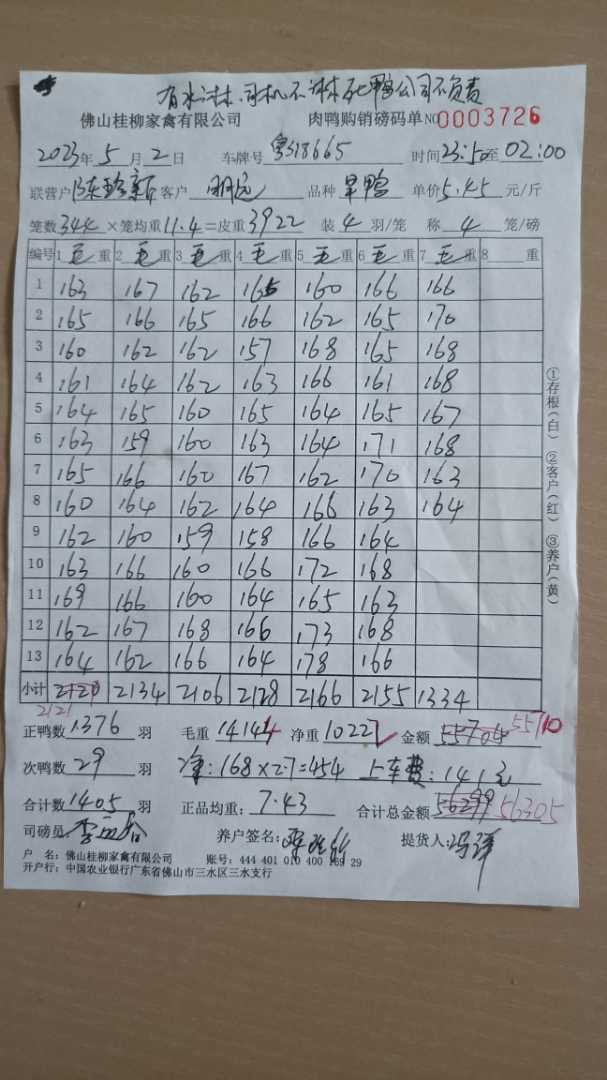 有水淋.司机不淋死鸭公司不负责
佛山桂柳家禽有限公司 肉鸭购销磅码单 NO 0003726
2023年5月2日 车牌号 粤S18665 时间 23:50至02:00
联营户 陈 新 客户 明远 品种 旱鸭 单价 5.45 元/斤
笼数 344 ×笼均重 11.4 =皮重 3922 装 4 羽/笼 称 4 笼/磅
编号 1毛重 2毛重 3毛重 4毛重 5毛重 6毛重 7毛重 8 重
1 163 167 162 165 160 166 166
2 165 166 165 166 162 165 170
3 160 162 162 157 168 165 168
4 161 164 162 163 166 161 168
5 164 165 160 165 164 165 167
6 163 159 160 163 164 171 168
7 165 166 160 167 162 170 163
8 160 164 162 164 166 163 164
9 162 160 159 158 166 164
10 163 166 160 166 172 168
11 169 166 160 164 165 163
12 162 167 168 166 173 168
13 164 162 166 164 178 166
小计 2120 2134 2106 2128 2166 2155 1334
2121
正鸭数 1376 羽 毛重 14144 净重 10222 金额 55704 55710
次鸭数 29 羽 净:168×2.7=454 上车费:141元
合计数 1405 羽 正品均重: 7.43 合计总金额 56299 56305
司磅员: 李 养户签名: 提货人:冯
户 名:佛山桂柳家禽有限公司 账号:444 401 010 400 269 29
开户行:中国农业银行广东省佛山市三水区三水支行
①存根(白) ②客户(红) ③养户(黄)